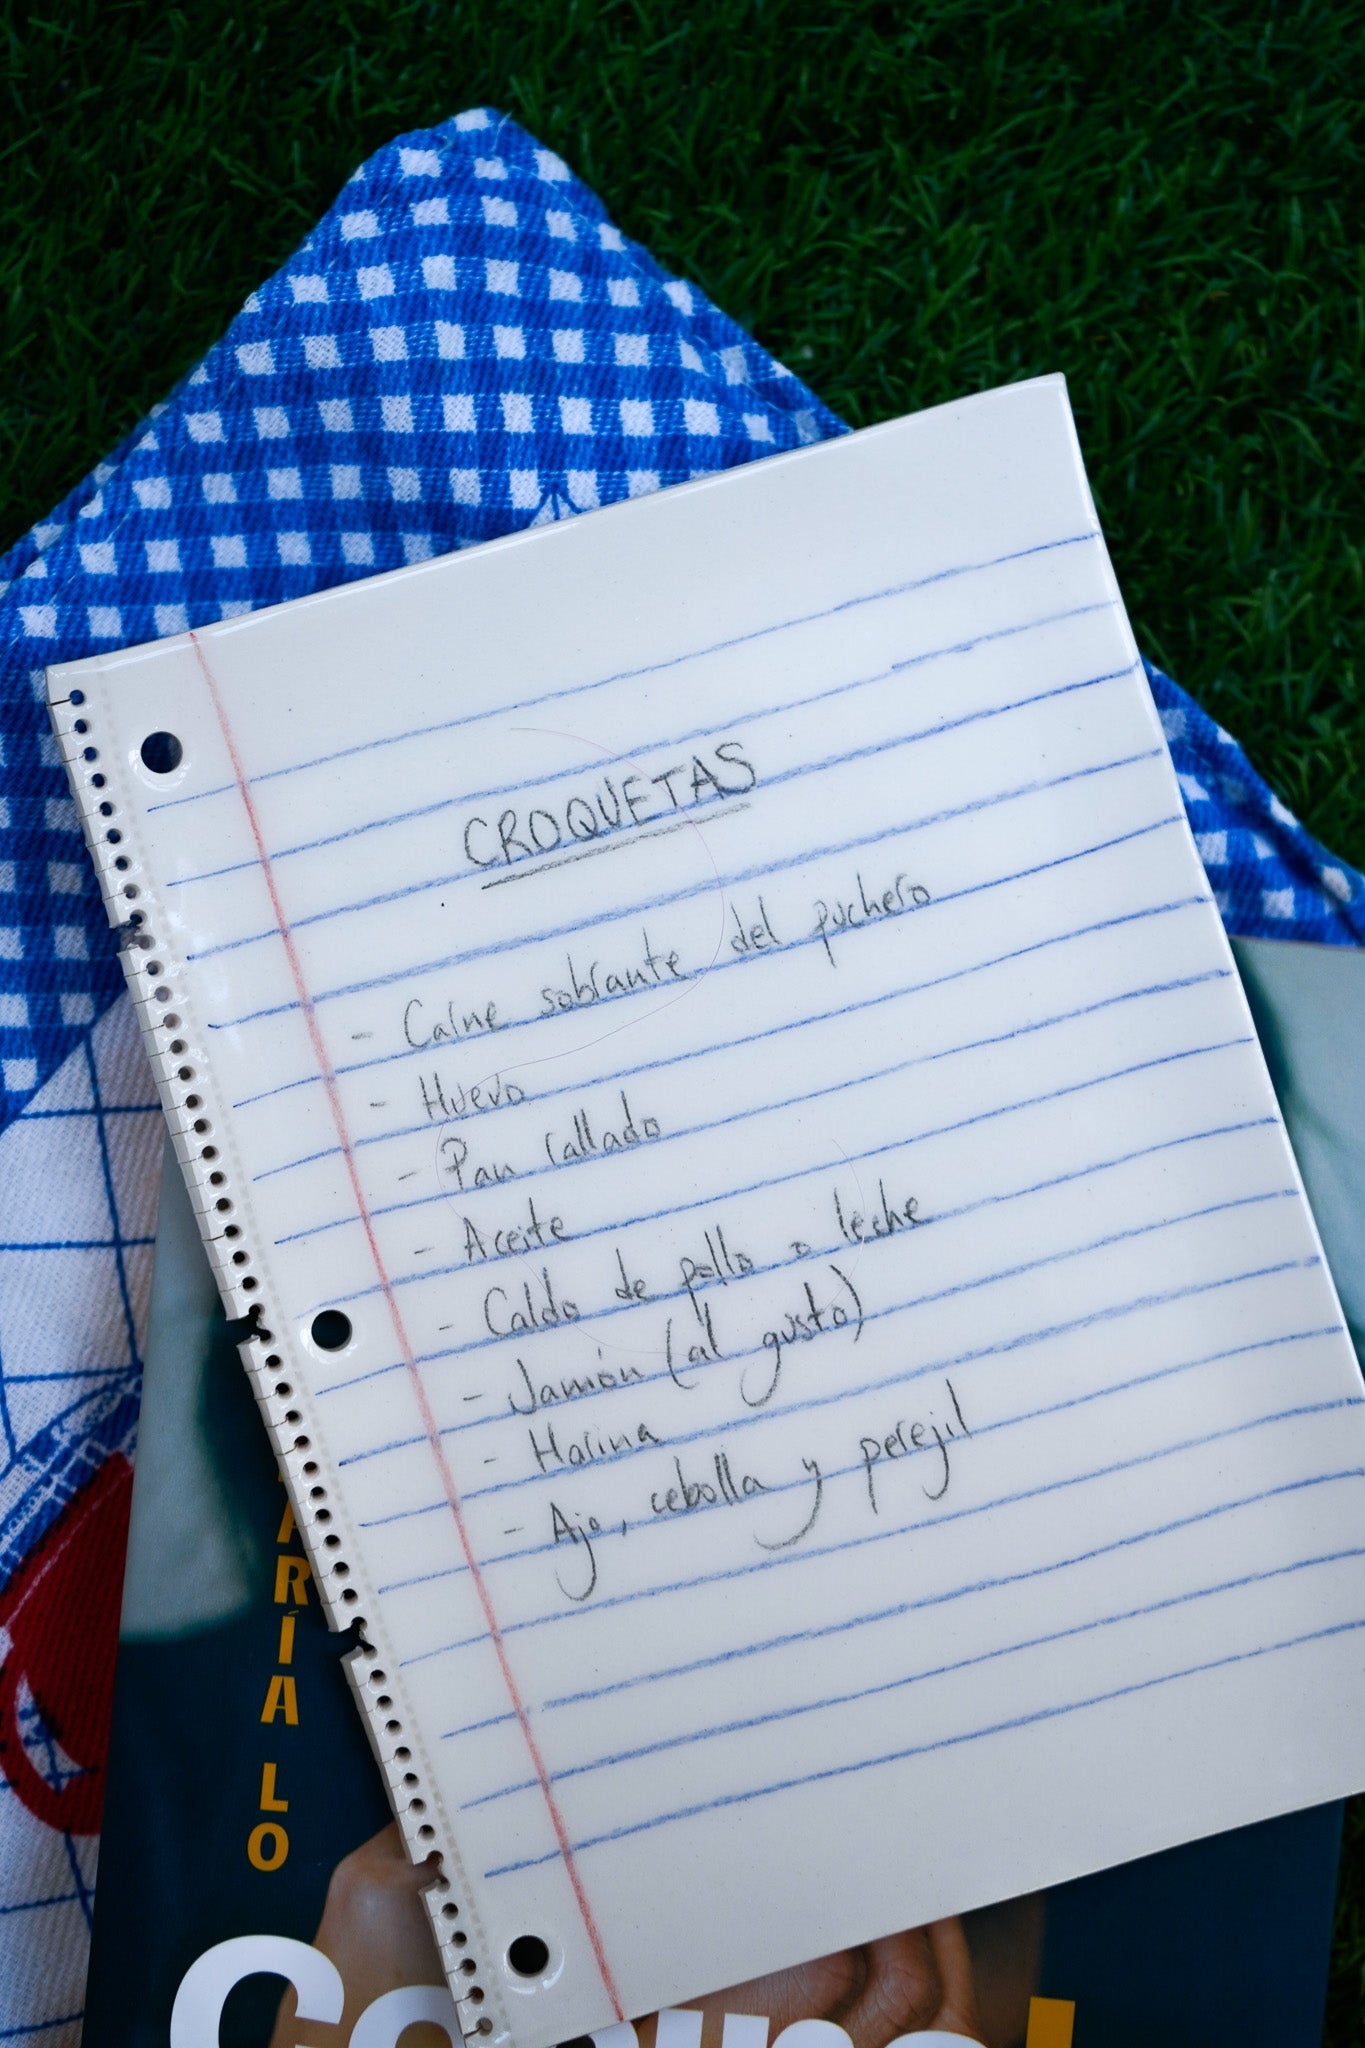 CROQUETAS
- Carne sobrante del puchero
- Huevo
- Pan rallado
- Aceite
- Caldo de pollo o leche
- Jamón (al gusto)
- Harina
- Ajo, cebolla y perejil
ARÍA LO